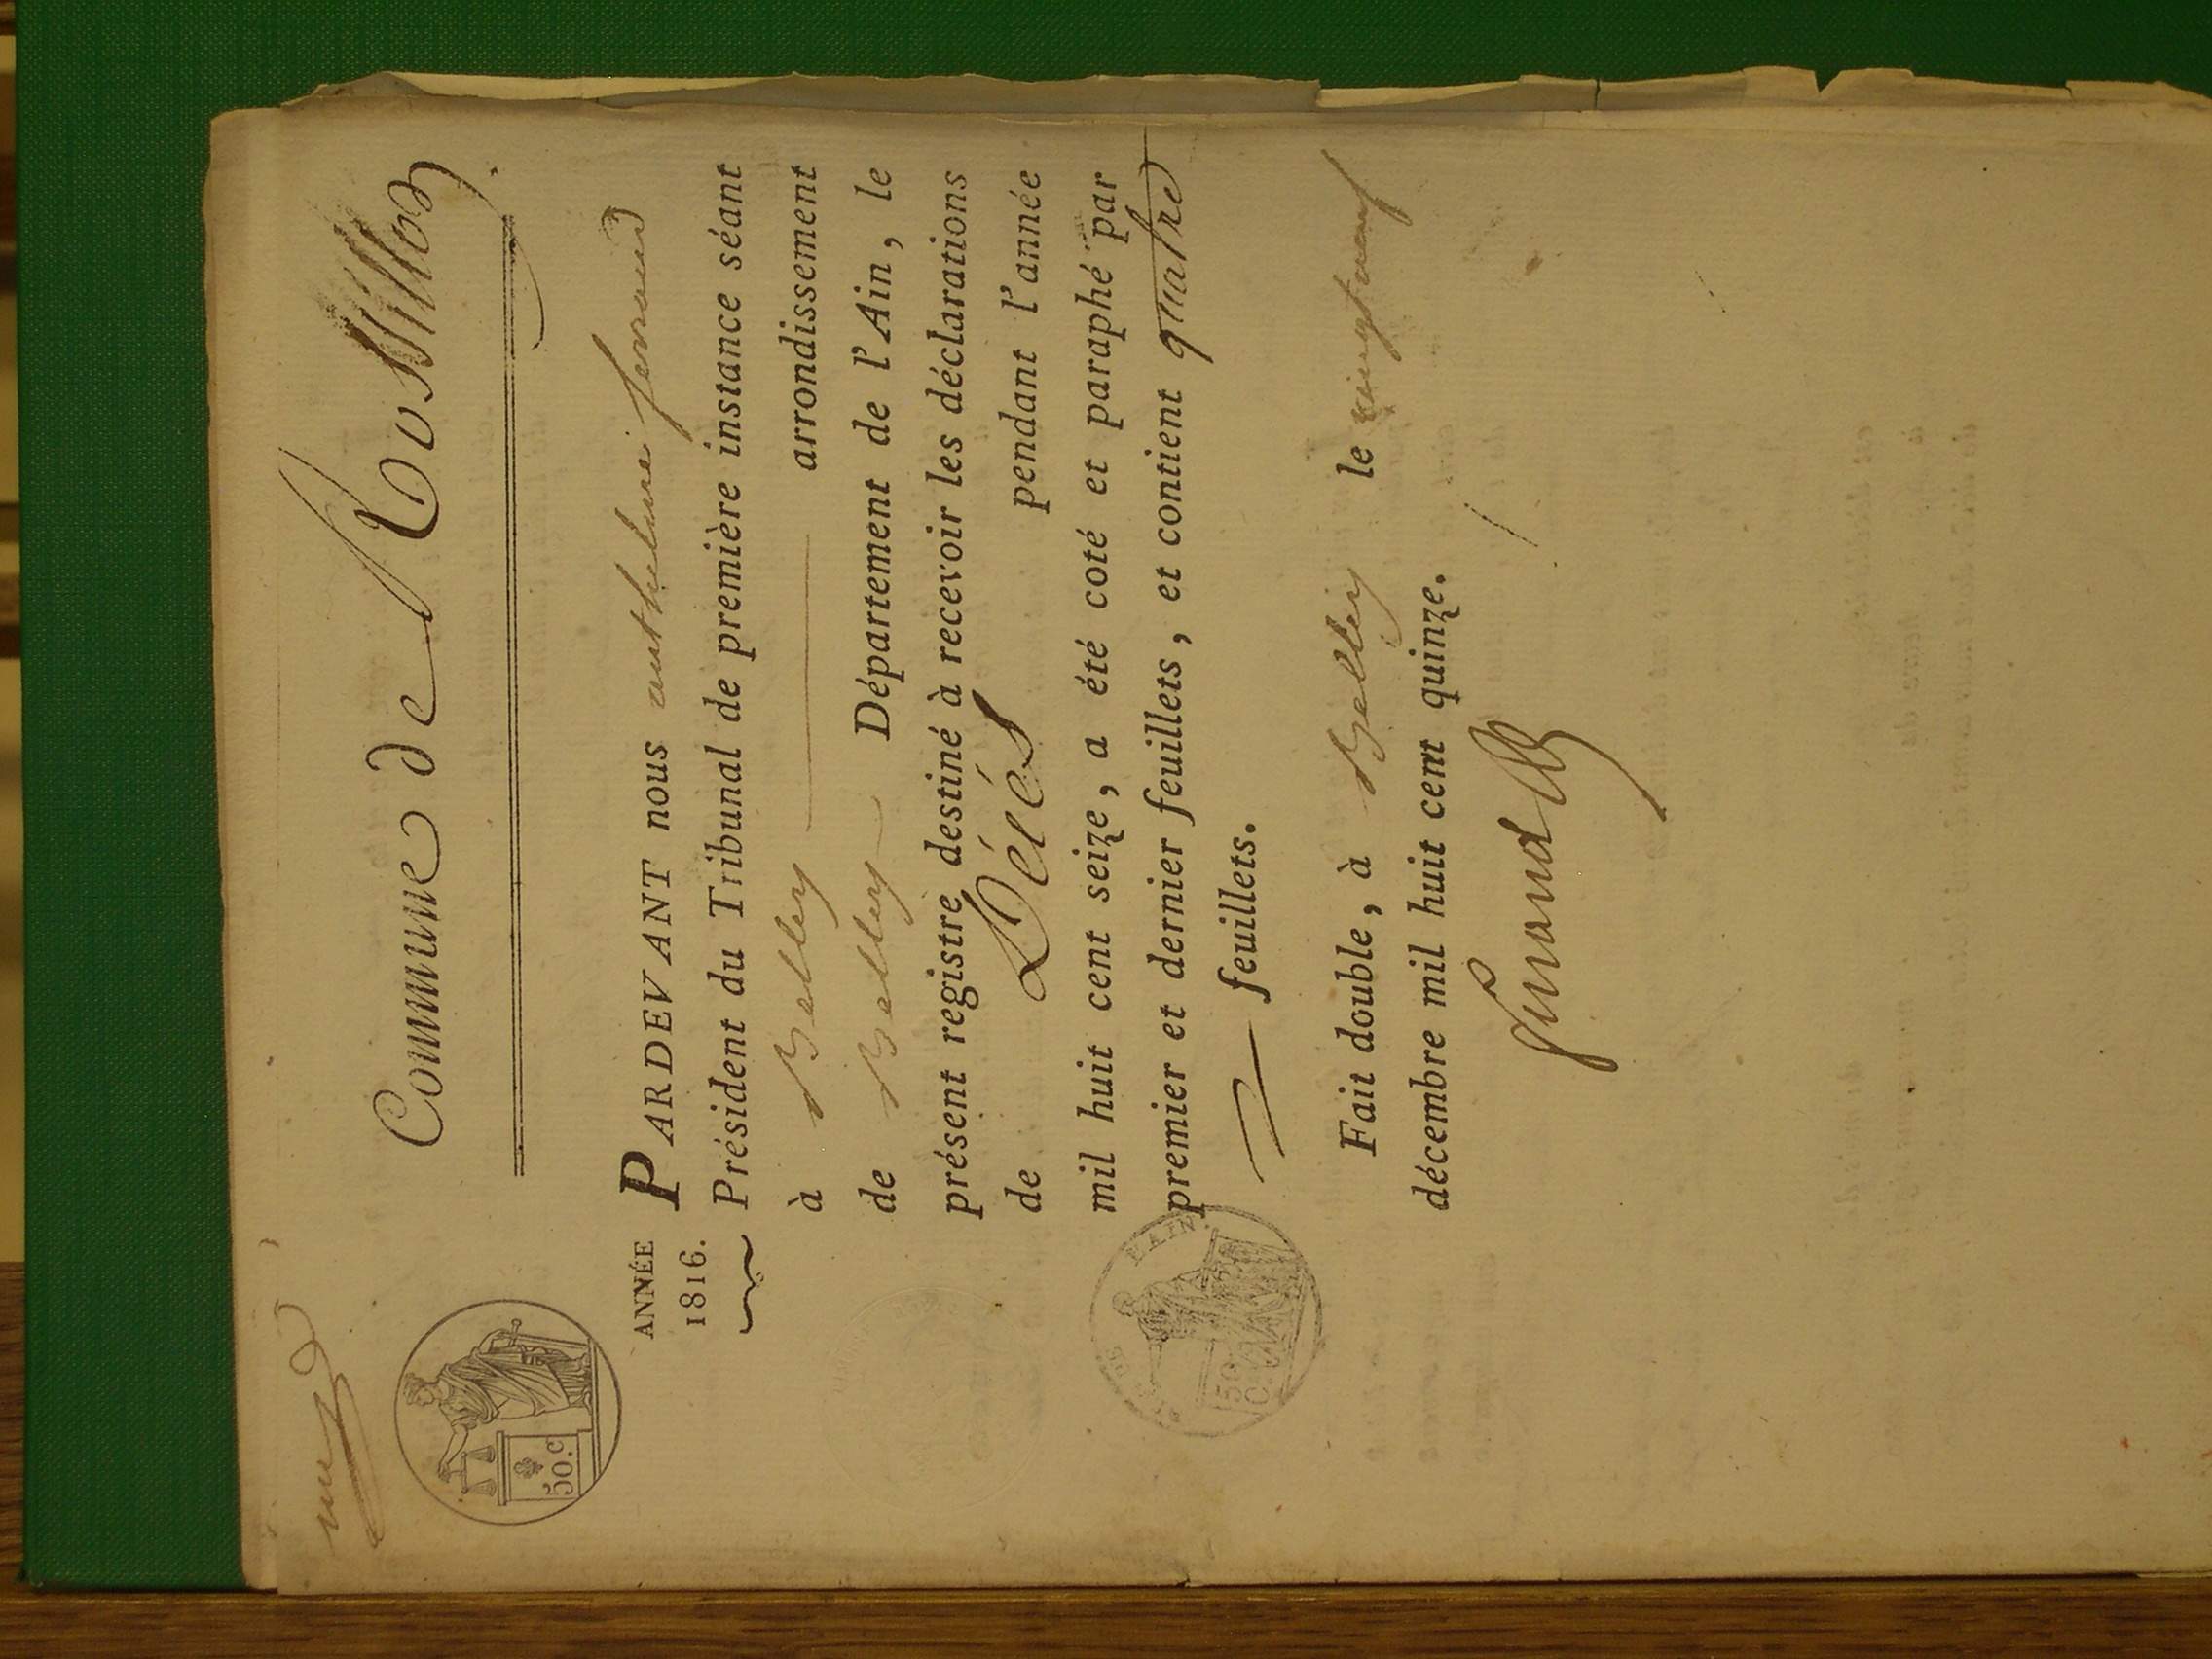 Commune de Rossillon
50.c
ANNÉE
1816.
PARDEVANT nous anthelme ferrand
Président du Tribunal de première instance séant
à Belley arrondissement
de Belley Département de l'Ain, le
présent registre destiné à recevoir les déclarations
de Décés pendant l'année
mil huit cent seize, a été coté et paraphé par
premier et dernier feuillets, et contient quatre
feuillets.
50
C
Fait double, à Belley le vingt neuf
décembre mil huit cent quinze.